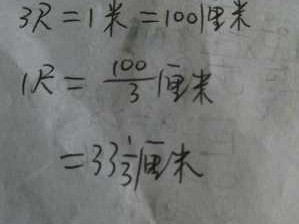 3尺=1米=100厘米
1尺=\frac{100}{3}厘米
=33\frac{1}{3}厘米